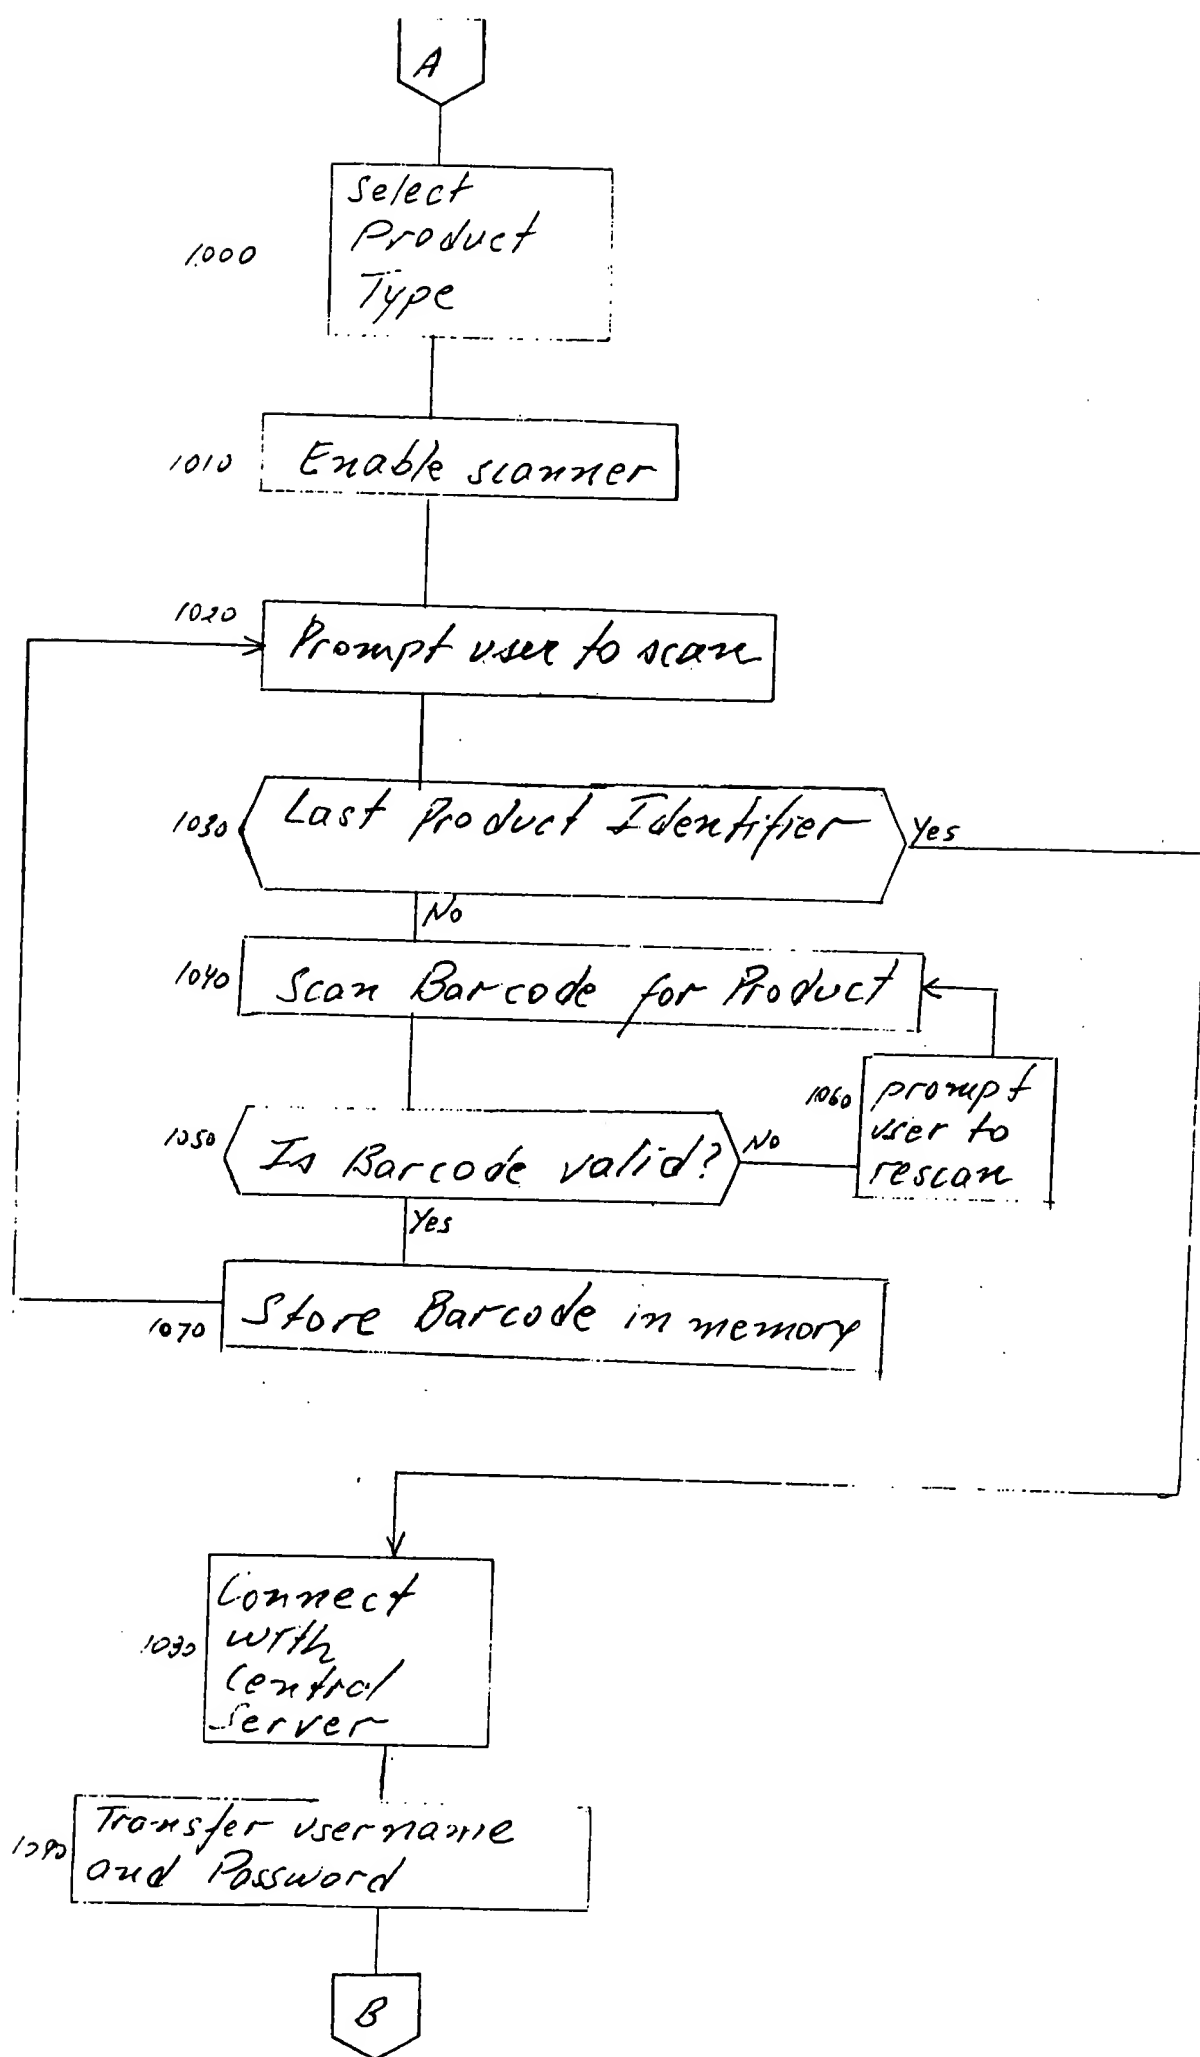 A
Select
Product
Type
1000
1010
Enable scanner
1020
Prompt user to scan
1030
Last Product Identifier
Yes
No
1040
Scan Barcode for Product
1060
prompt
user to
rescan
1050
Is Barcode valid?
No
Yes
1070
Store Barcode in memory
Connect
with
Central
Server
Transfer username
and Password
B